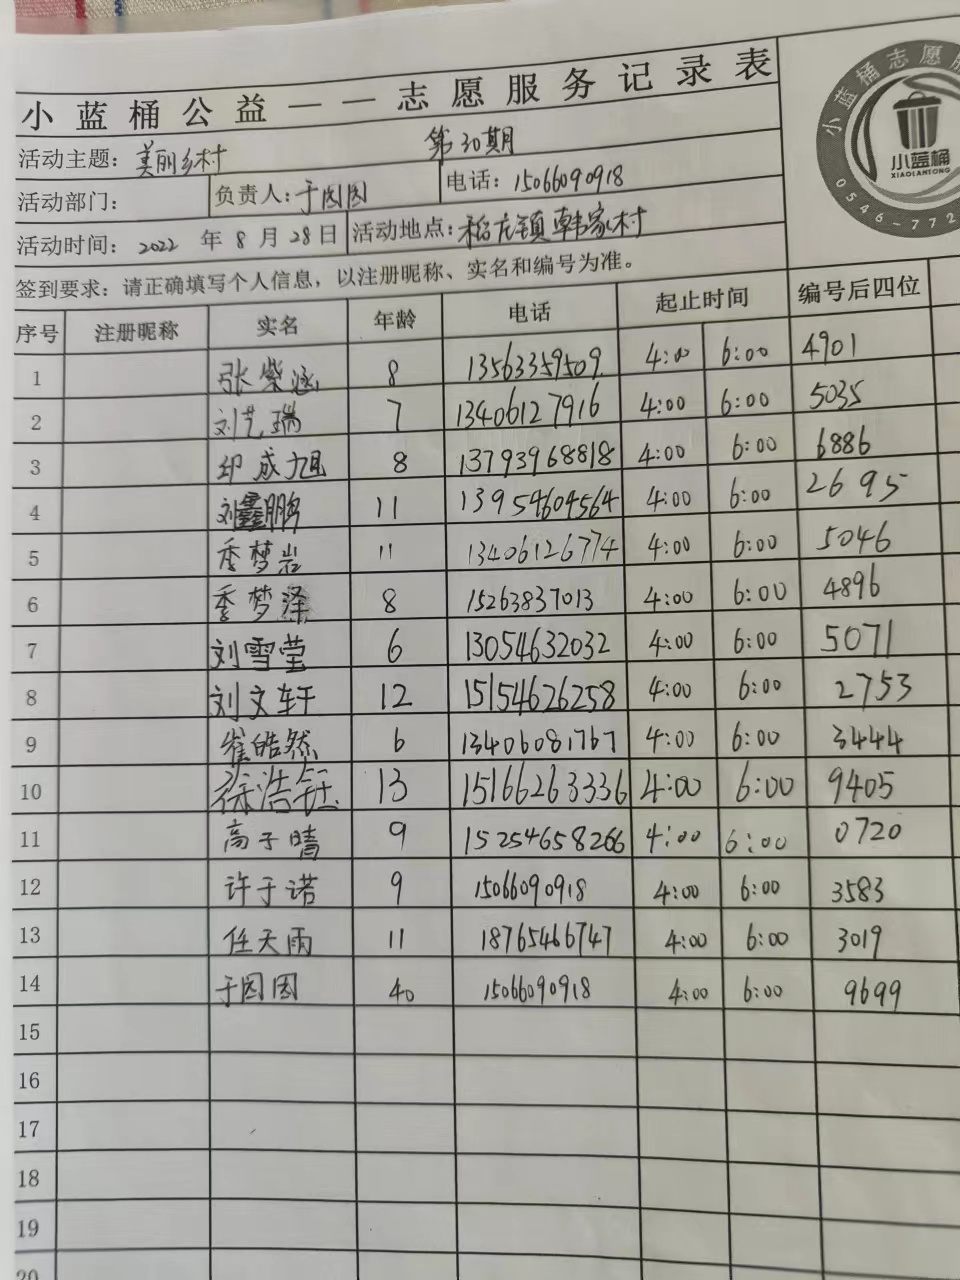 小蓝桶公益——志愿服务记录表
活动主题：美丽乡村 第30期
活动部门： 负责人：于囡囡 电话：15066090918
活动时间：2022 年 8 月 28 日 活动地点：稻庄镇韩家村
签到要求：请正确填写个人信息，以注册昵称、实名和编号为准。
序号 注册昵称 实名 年龄 电话 起止时间 编号后四位
1 张紫涵 8 13563359509 4:00 6:00 4901
2 刘艺瑞 7 13406127916 4:00 6:00 5035
3 印成旭 8 13793968818 4:00 6:00 6886
4 刘鑫鹏 11 13954604564 4:00 6:00 2695
5 季梦岩 11 13406126774 4:00 6:00 5046
6 季梦泽 8 15263837013 4:00 6:00 4896
7 刘雪莹 6 13054632032 4:00 6:00 5071
8 刘文轩 12 15154626258 4:00 6:00 2753
9 崔皓然 6 13406081767 4:00 6:00 3444
10 徐浩钰 13 15166263336 4:00 6:00 9405
11 高子晴 9 15254658266 4:00 6:00 0720
12 许于诺 9 15066090918 4:00 6:00 3583
13 任天雨 11 18765466747 4:00 6:00 3019
14 于囡囡 40 15066090918 4:00 6:00 9699
15
16
17
18
19
20
小蓝桶志愿服
小蓝桶
XIAOLANTONG
0546-772